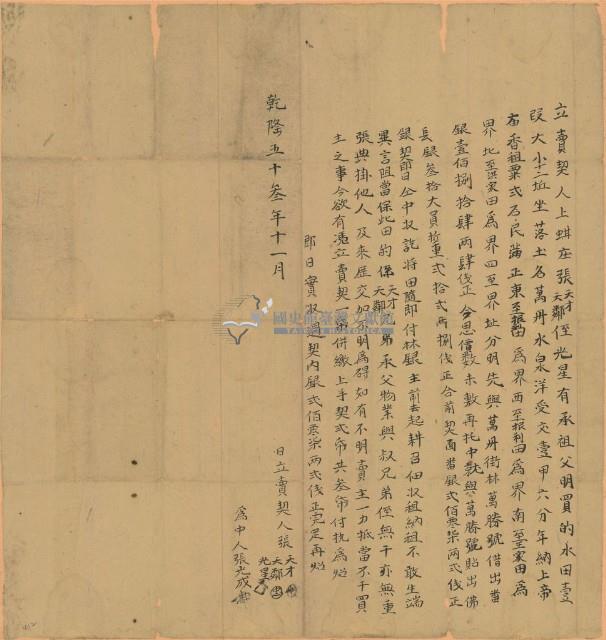 立賣契人上蚶庄張天才天鄰侄光星有承祖父明買的水田壹
段大小十二坵坐落土名萬丹水泉洋受丈壹甲六分年納上帝
廟香租粟弍石民滿正東至田為界西至田為界南至王家田為
界北至洪家田為界四至界址分明先與萬丹街林萬勝號借出番
銀壹佰捌拾肆兩肆錢正今思價數未敷再托中就與萬勝號貼出佛
長銀叁拾大員折重弍拾弍兩捌錢正合前契面番銀弍佰零柒兩弍錢正
銀契即日仝中收訖將田隨即付林銀主前去起耕召佃收租納租不敢生端
異言阻當保此田的係天才天鄰兄弟承父物業與叔兄弟侄無干亦無重
張典掛他人及來歷交加不明為碍如有不明賣主一力抵當不干買
主之事今欲有憑立賣契一帋併繳上手契弍帋共叁帋付执為炤
即日實收過契內銀弍佰零柒兩弍錢正完足再炤
乾隆五十叁年十一月
日立賣契人張天才天鄰光星
為中人張光成
國史館臺灣文獻館
TAIWAN HISTORICA